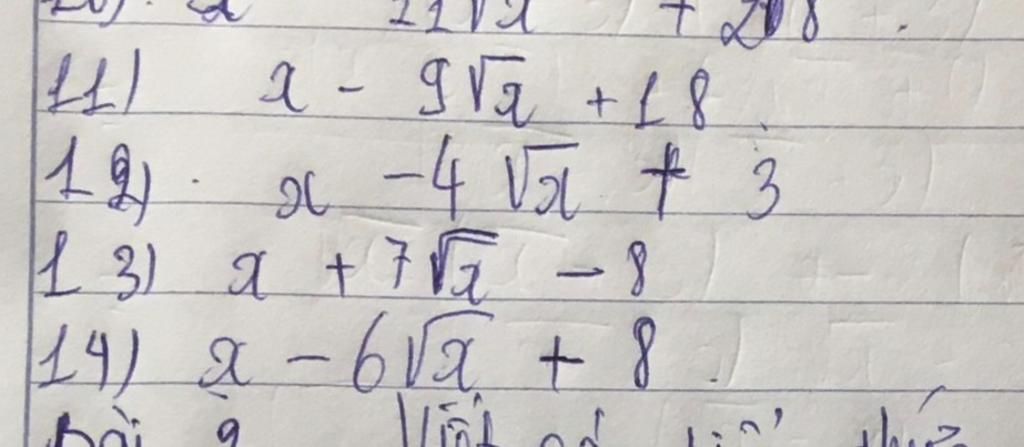 x 11√x + 28.
11) x - 9√x + 18.
12) x - 4√x + 3
13) x + 7√x - 8
14) x - 6√x + 8.
Bài 2